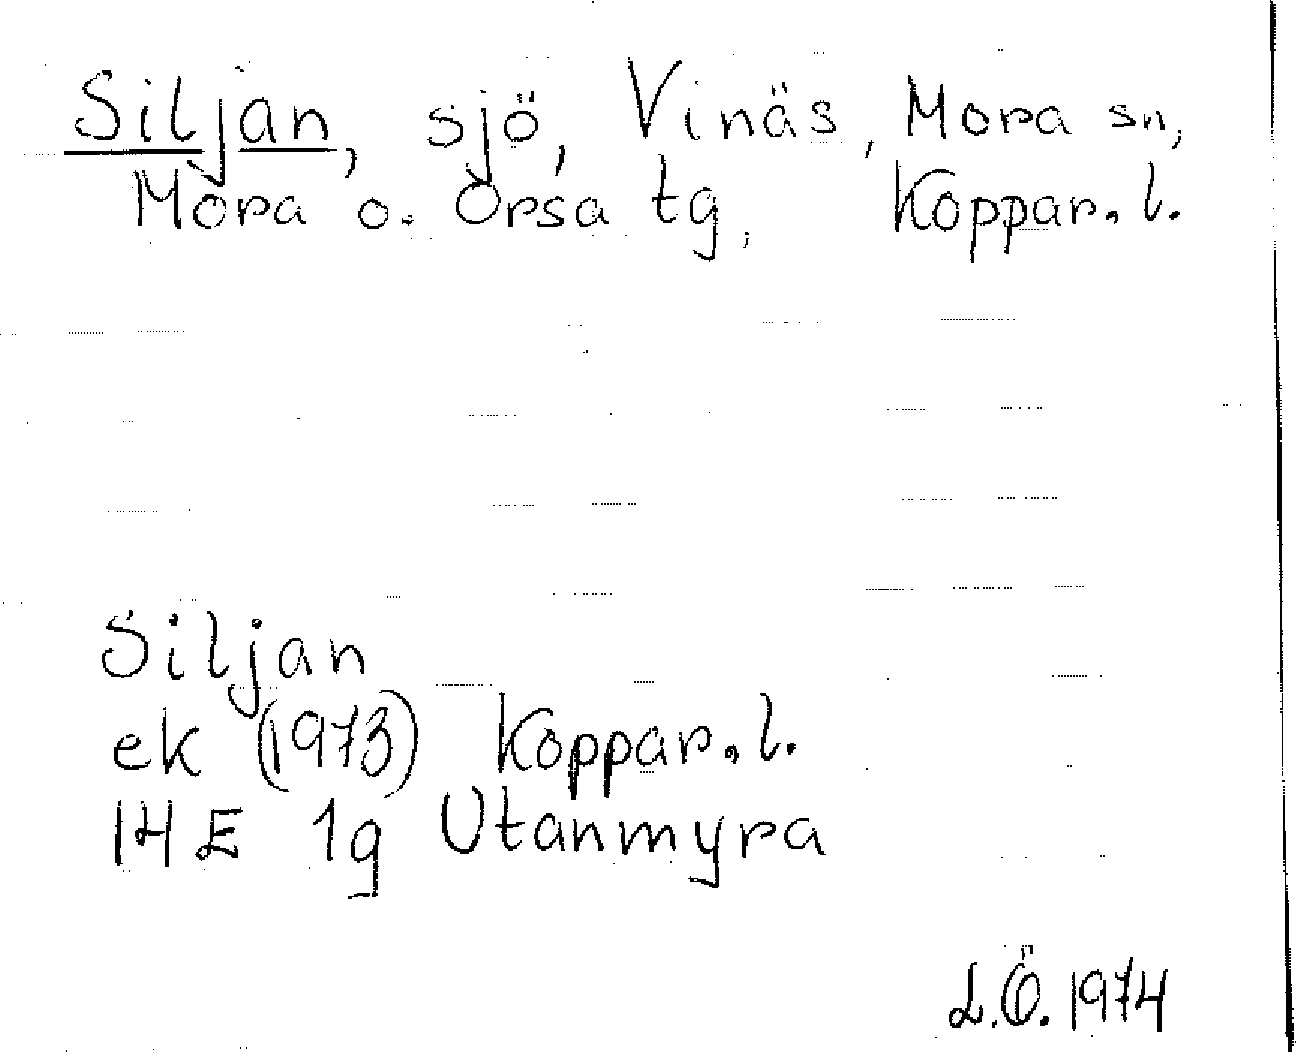 Siljan, sjö, Vinäs, Mora sn,
Mora o. Orsa tg, Koppar. l.
Siljan
ek (1973) Koppar. l.
14 E 1g Utanmyra
L.Ö. 1974